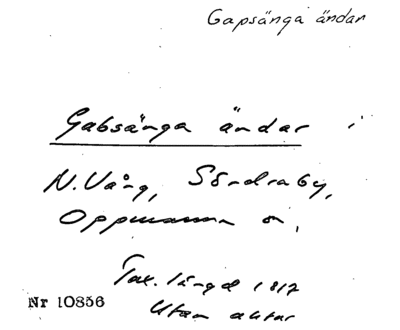 Gapsänga ändar
Gabsänga ändar i
N. Vång, Söndraby,
Oppmanna s,
Tax. längd 1812
Nr 10856
Utan aktar